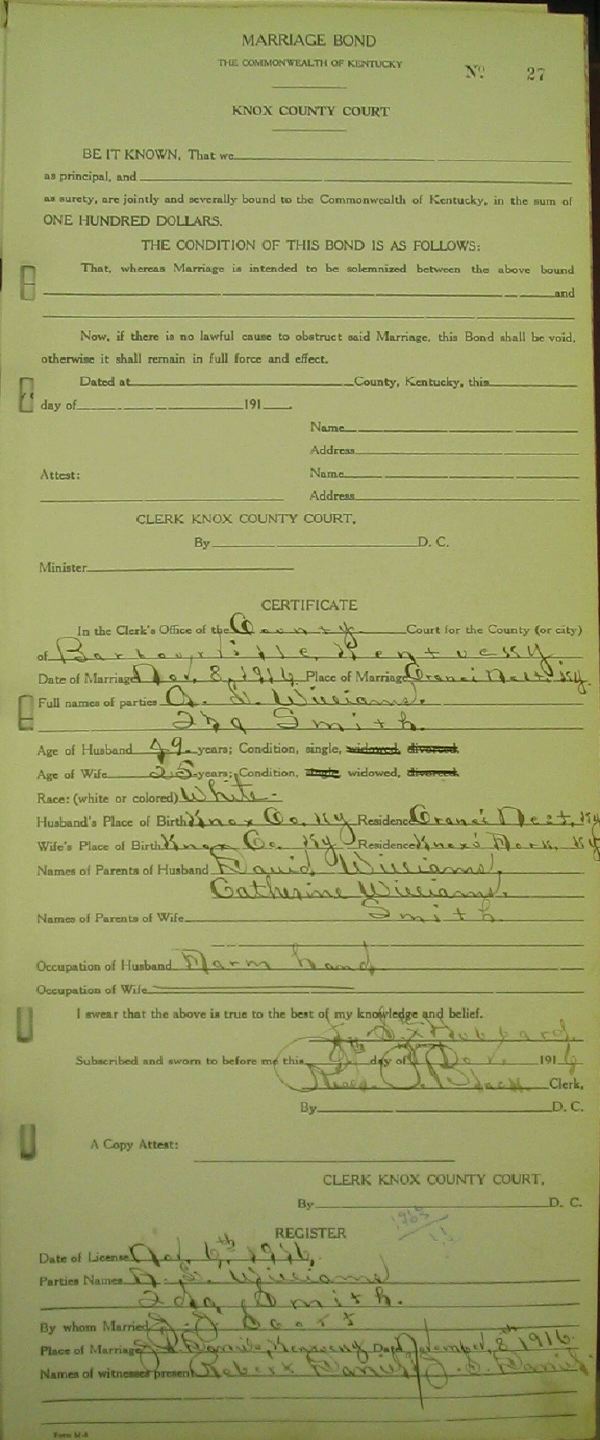 MARRIAGE BOND
THE COMMONWEALTH OF KENTUCKY
No. 27
KNOX COUNTY COURT
BE IT KNOWN, That we
as principal, and
as surety, are jointly and severally bound to the Commonwealth of Kentucky, in the sum of
ONE HUNDRED DOLLARS.
THE CONDITION OF THIS BOND IS AS FOLLOWS:
That, whereas Marriage is intended to be solemnized between the above bound
and
Now, if there is no lawful cause to obstruct said Marriage, this Bond shall be void,
otherwise it shall remain in full force and effect.
Dated at County, Kentucky, this
day of 191
Name
Address
Attest: Name
Address
CLERK KNOX COUNTY COURT.
By D. C.
Minister
CERTIFICATE
In the Clerk's Office of the County Court for the County (or city)
of Barbourville, Kentucky
Date of Marriage Nov. 8, 1916 Place of Marriage Ky.
Full names of parties Williams.
Ida Smith.
Age of Husband 49 years; Condition, single, widowed, divorced
Age of Wife 25 years; Condition, single, widowed, divorced
Race: (white or colored) White
Husband's Place of Birth Knox Co. Ky Residence Ky
Wife's Place of Birth Knox Co. Ky Residence Ky
Names of Parents of Husband David Williams,
Catherine Williams.
Names of Parents of Wife Smith
Occupation of Husband Farm hand
Occupation of Wife
I swear that the above is true to the best of my knowledge and belief.
Hubbard
Subscribed and sworn to before me this day of Nov. 1916
Read P. Black Clerk,
By D. C.
A Copy Attest:
CLERK KNOX COUNTY COURT,
By D. C.
REGISTER
Date of License Nov. 6th, 1916,
Parties Names Williams
Ida Smith.
By whom Married
Place of Marriage Date November 8th 1916
Names of witnesses present Robert
Form M-8